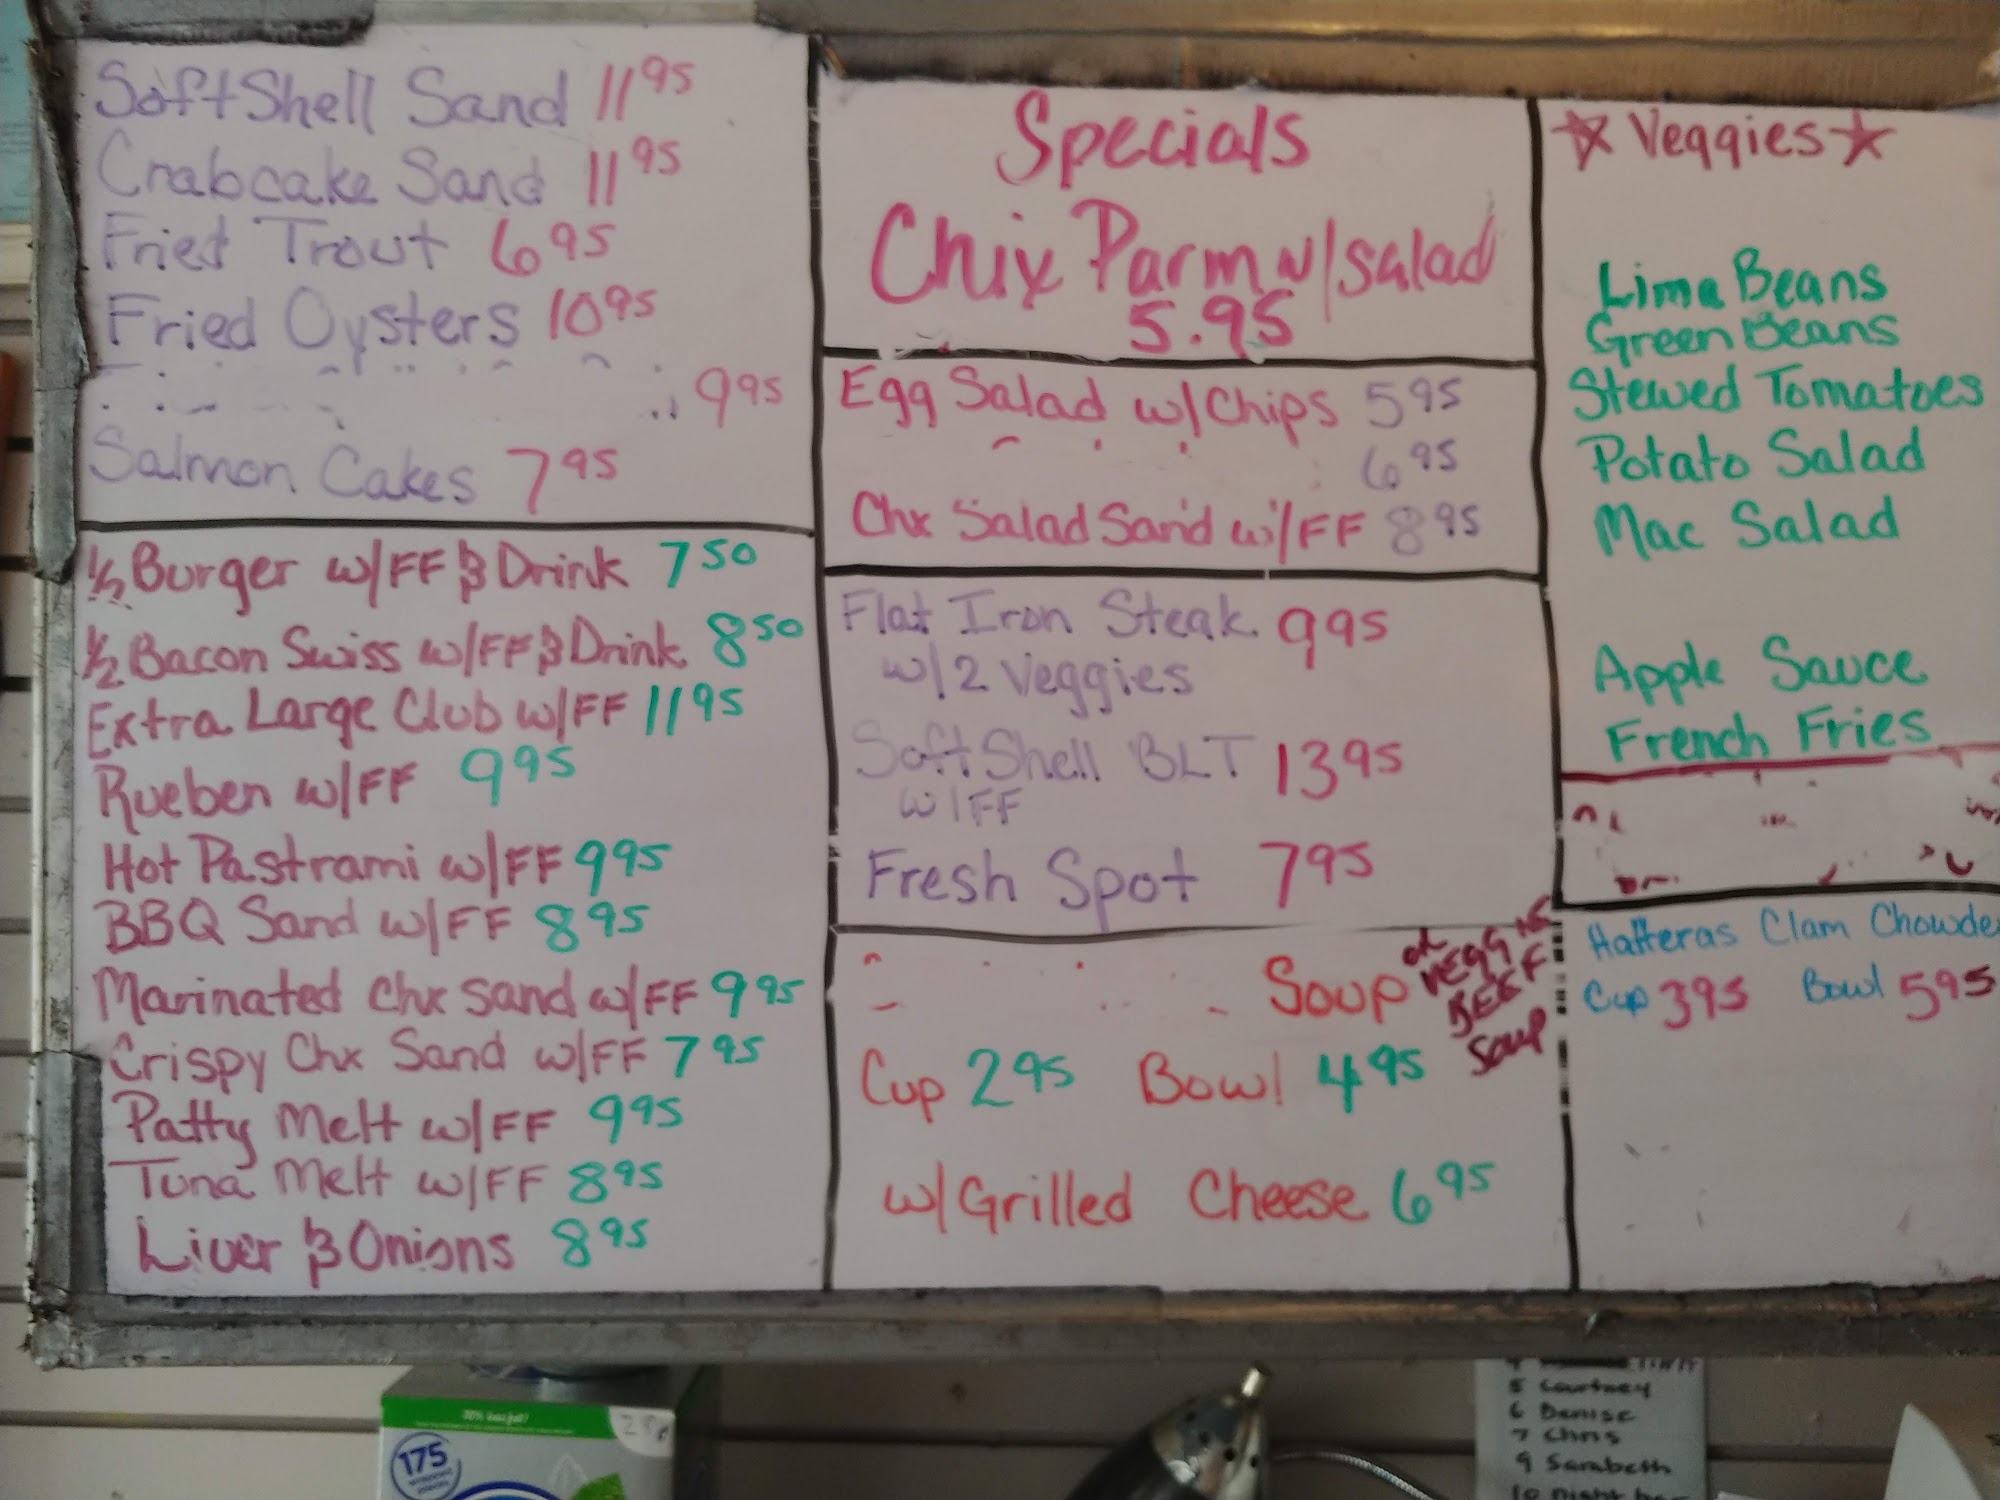 SoftShell Sand 11 95
Crabcake Sand 11 95
Fried Trout 6 95
Fried Oysters 10 95
9 95
Salmon Cakes 7 95
1/2 Burger w/FF & Drink 7 50
1/2 Bacon Swiss w/FF & Drink 8 50
Extra Large Club w/FF 11 95
Rueben w/FF 9 95
Hot Pastrami w/FF 9 95
BBQ Sand w/FF 8 95
Marinated Chx Sand w/FF 9 95
Crispy Chx Sand w/FF 7 95
Patty Melt w/FF 9 95
Tuna Melt w/FF 8 95
Liver & Onions 8 95
Specials
Chix Parm w/salad
5.95
Egg Salad w/Chips 5 95
6 95
Chx Salad Sand w/FF 8 95
Flat Iron Steak 9 95
w/2 Veggies
SoftShell BLT 13 95
w/FF
Fresh Spot 7 95
Soup
BEEF
Soup
Cup 2 95 Bowl 4 95
w/Grilled Cheese 6 95
Veggies
Lima Beans
Green Beans
Stewed Tomatoes
Potato Salad
Mac Salad
Apple Sauce
French Fries
Hatteras Clam Chowde
Cup 3 95 Bowl 5 95
175
5 Courtney
6 Denise
7 Chris
9 Sarabeth